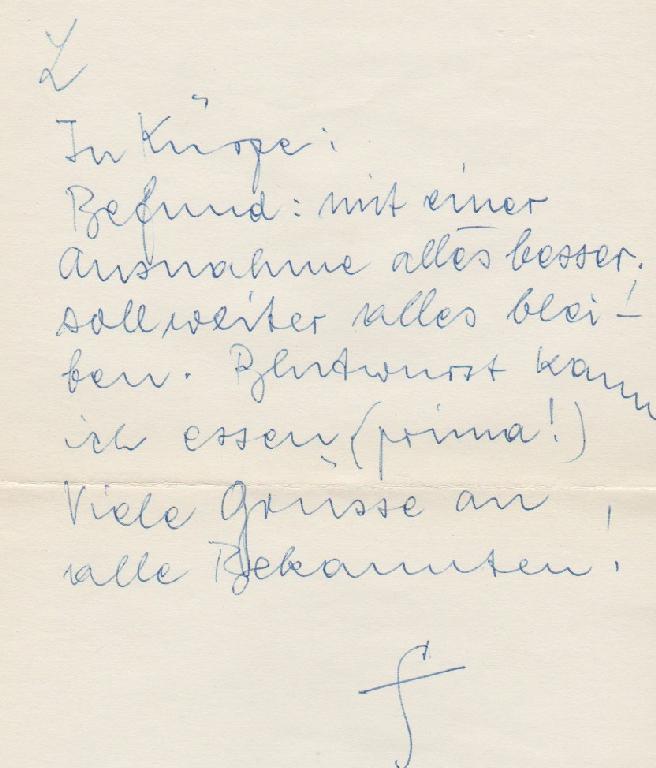 In Kürze:
Befund: mit einer
Ausnahme alles besser.
soll weiter alles blei-
ben. Blutwurst kann
ich essen (prima!)
Viele Grüsse an
alle Bekannten!